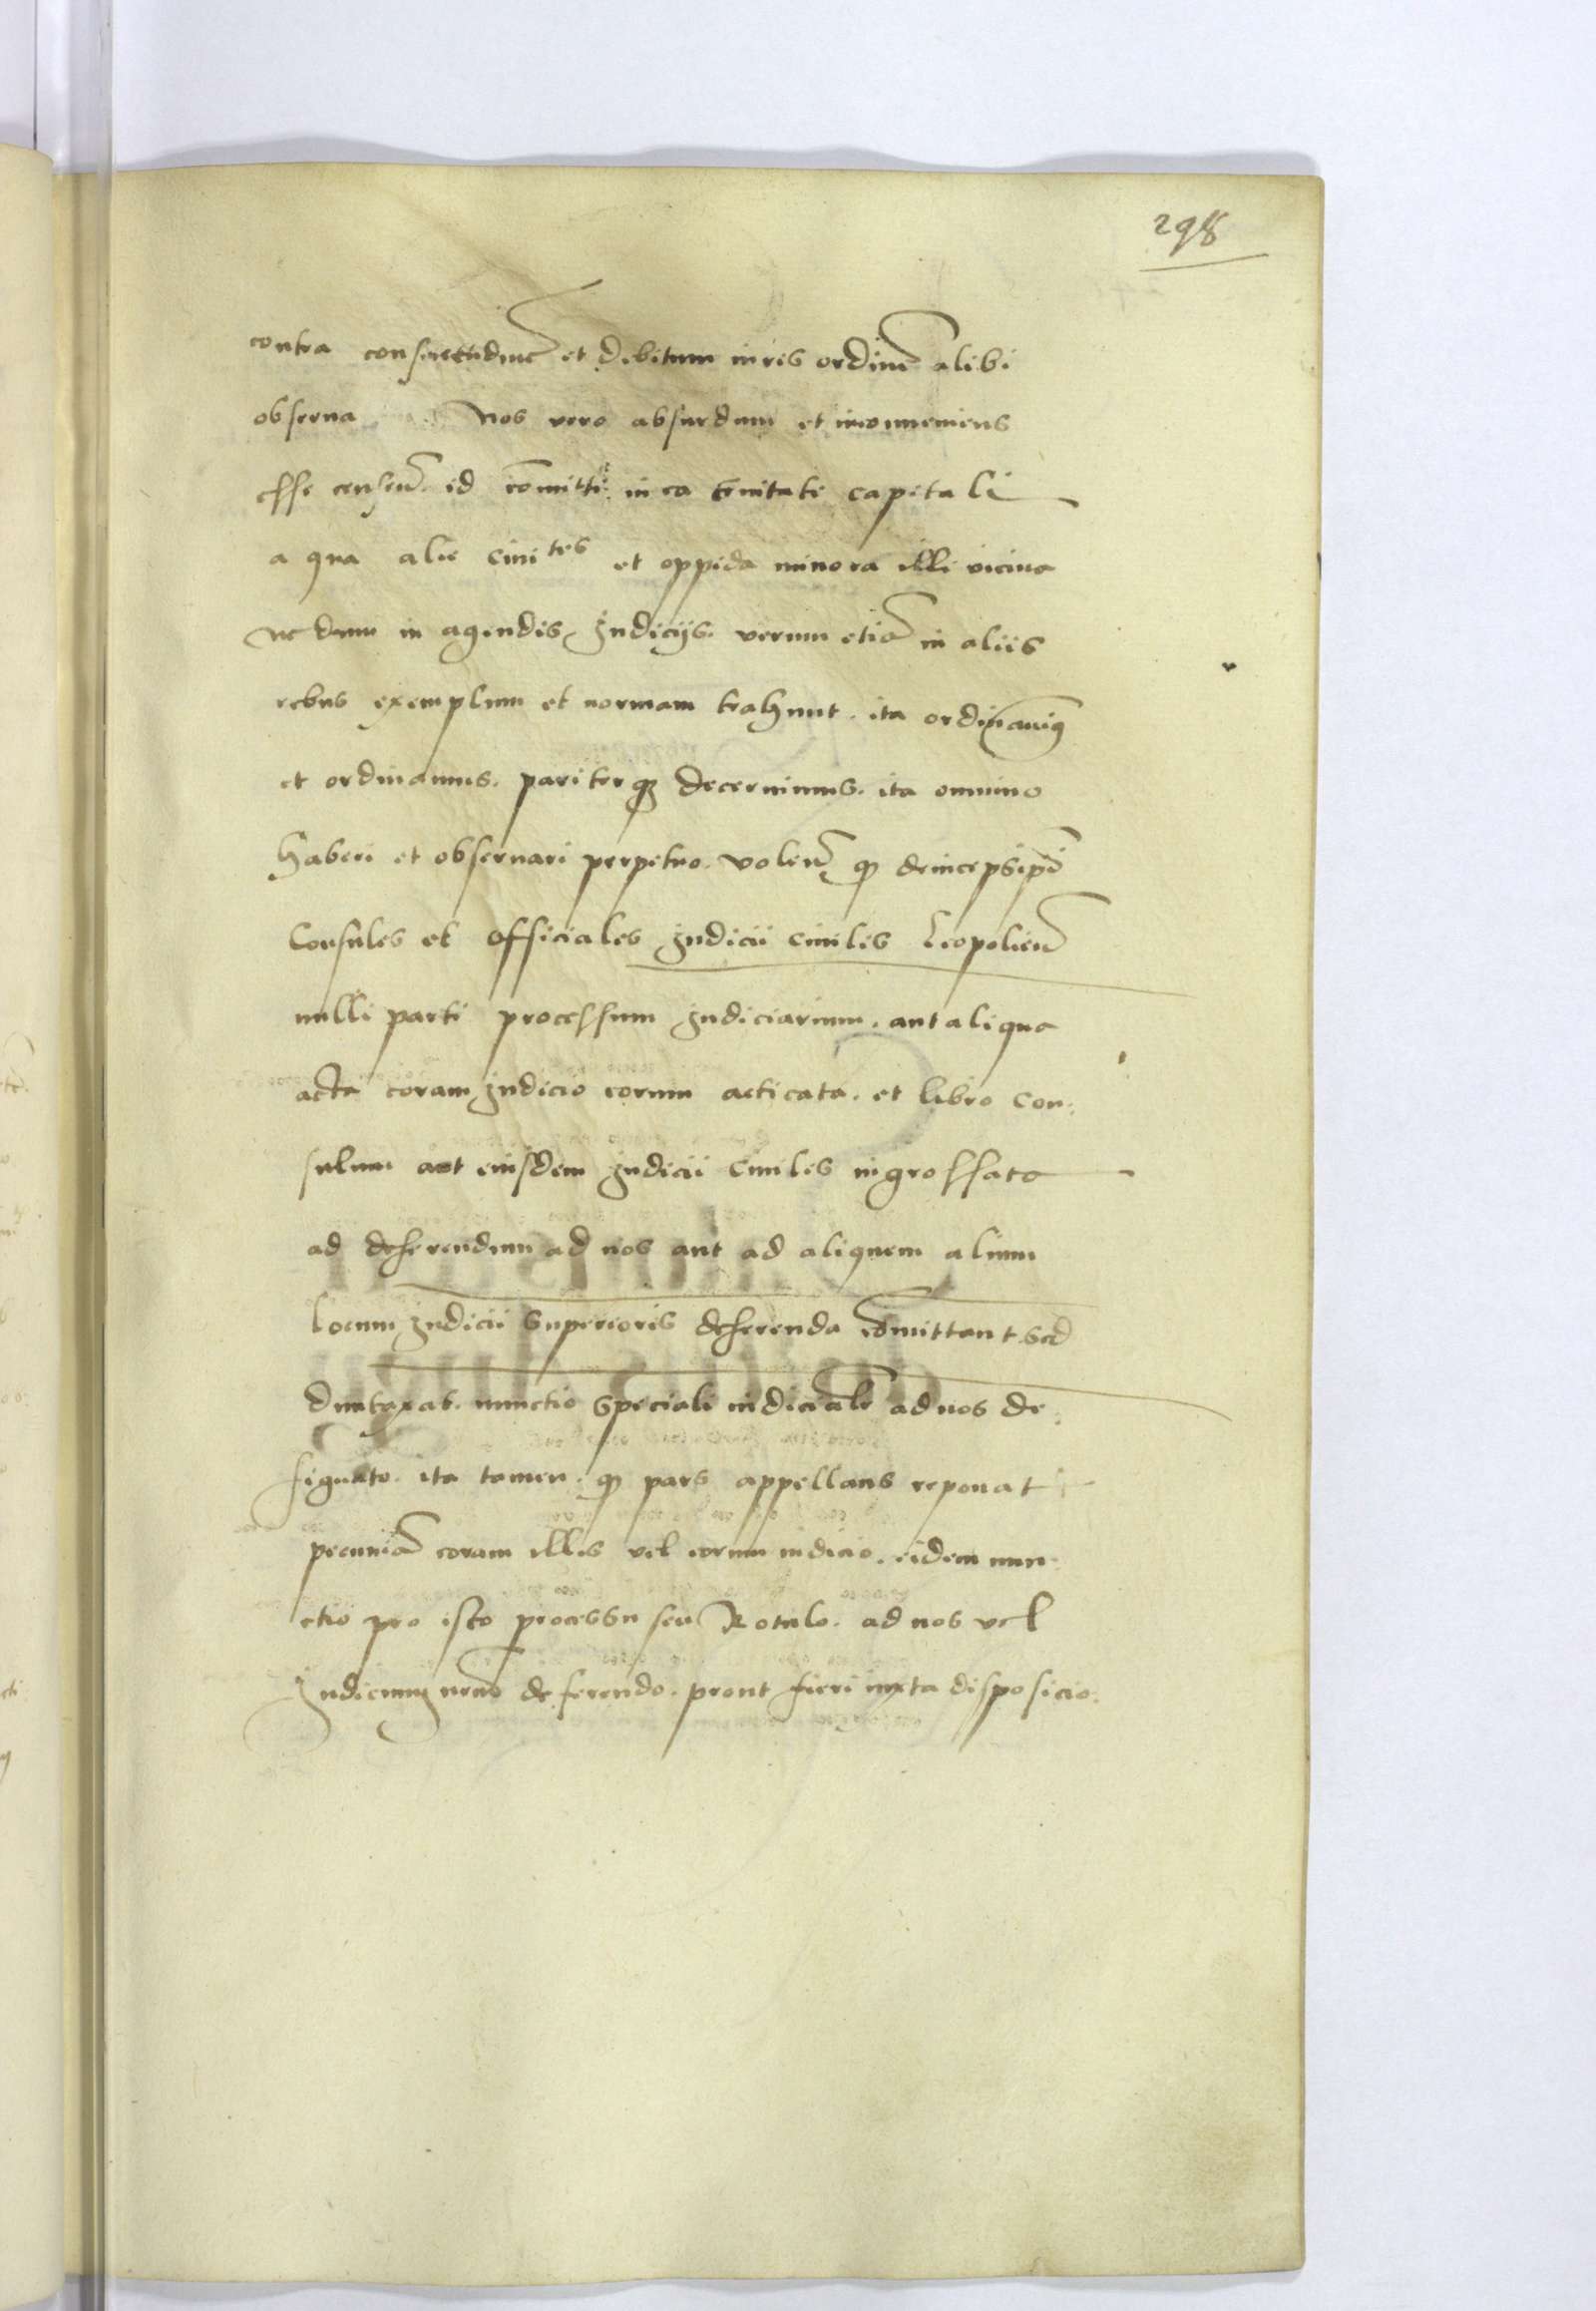 298
contra consuetudinē et debitum iuris ordinē alibi
obserua Nos vero absurdum et inconueniens
esse censeñ. id cōmitti in ea ciuitate capitali
a qua alie ciuitᵗᵉˢ et oppida minora illi vicina
nedum in agendis Iudicijs. verum etiā in aliis
rebus exemplum et normam trahunt. ita ordinauimꝰ
et ordinamus. pariterqꝫ decernimus. ita omnino
haberi et obseruari perpetuo. voleñ. ꝙ deinceps ip̄i
Consules et officiales Iudicii ciuilis Leopolieñ
nulli parti processum Iudiciarium. aut aliqua
acta coram Iudicio eorum acticata. et libro Con:
sulum aut eiusdem Iudicii Ciuilis ingrossata
ad deferendum ad nos aut ad aliquem alium
locum Iudicii Superioris deferenda cōmittant. Sed
duntaxat. nunctio Speciali iudiciali ad nos de:
signato. ita tamen. ꝙ pars appellans reponat
pecuniā coram illis vel eorum iudicio. eidem nun:
ctio pro isto processu seu Rotulo. ad nos vel
Iudicium nr̄m deferendo. prout fieri iuxta disposicio: